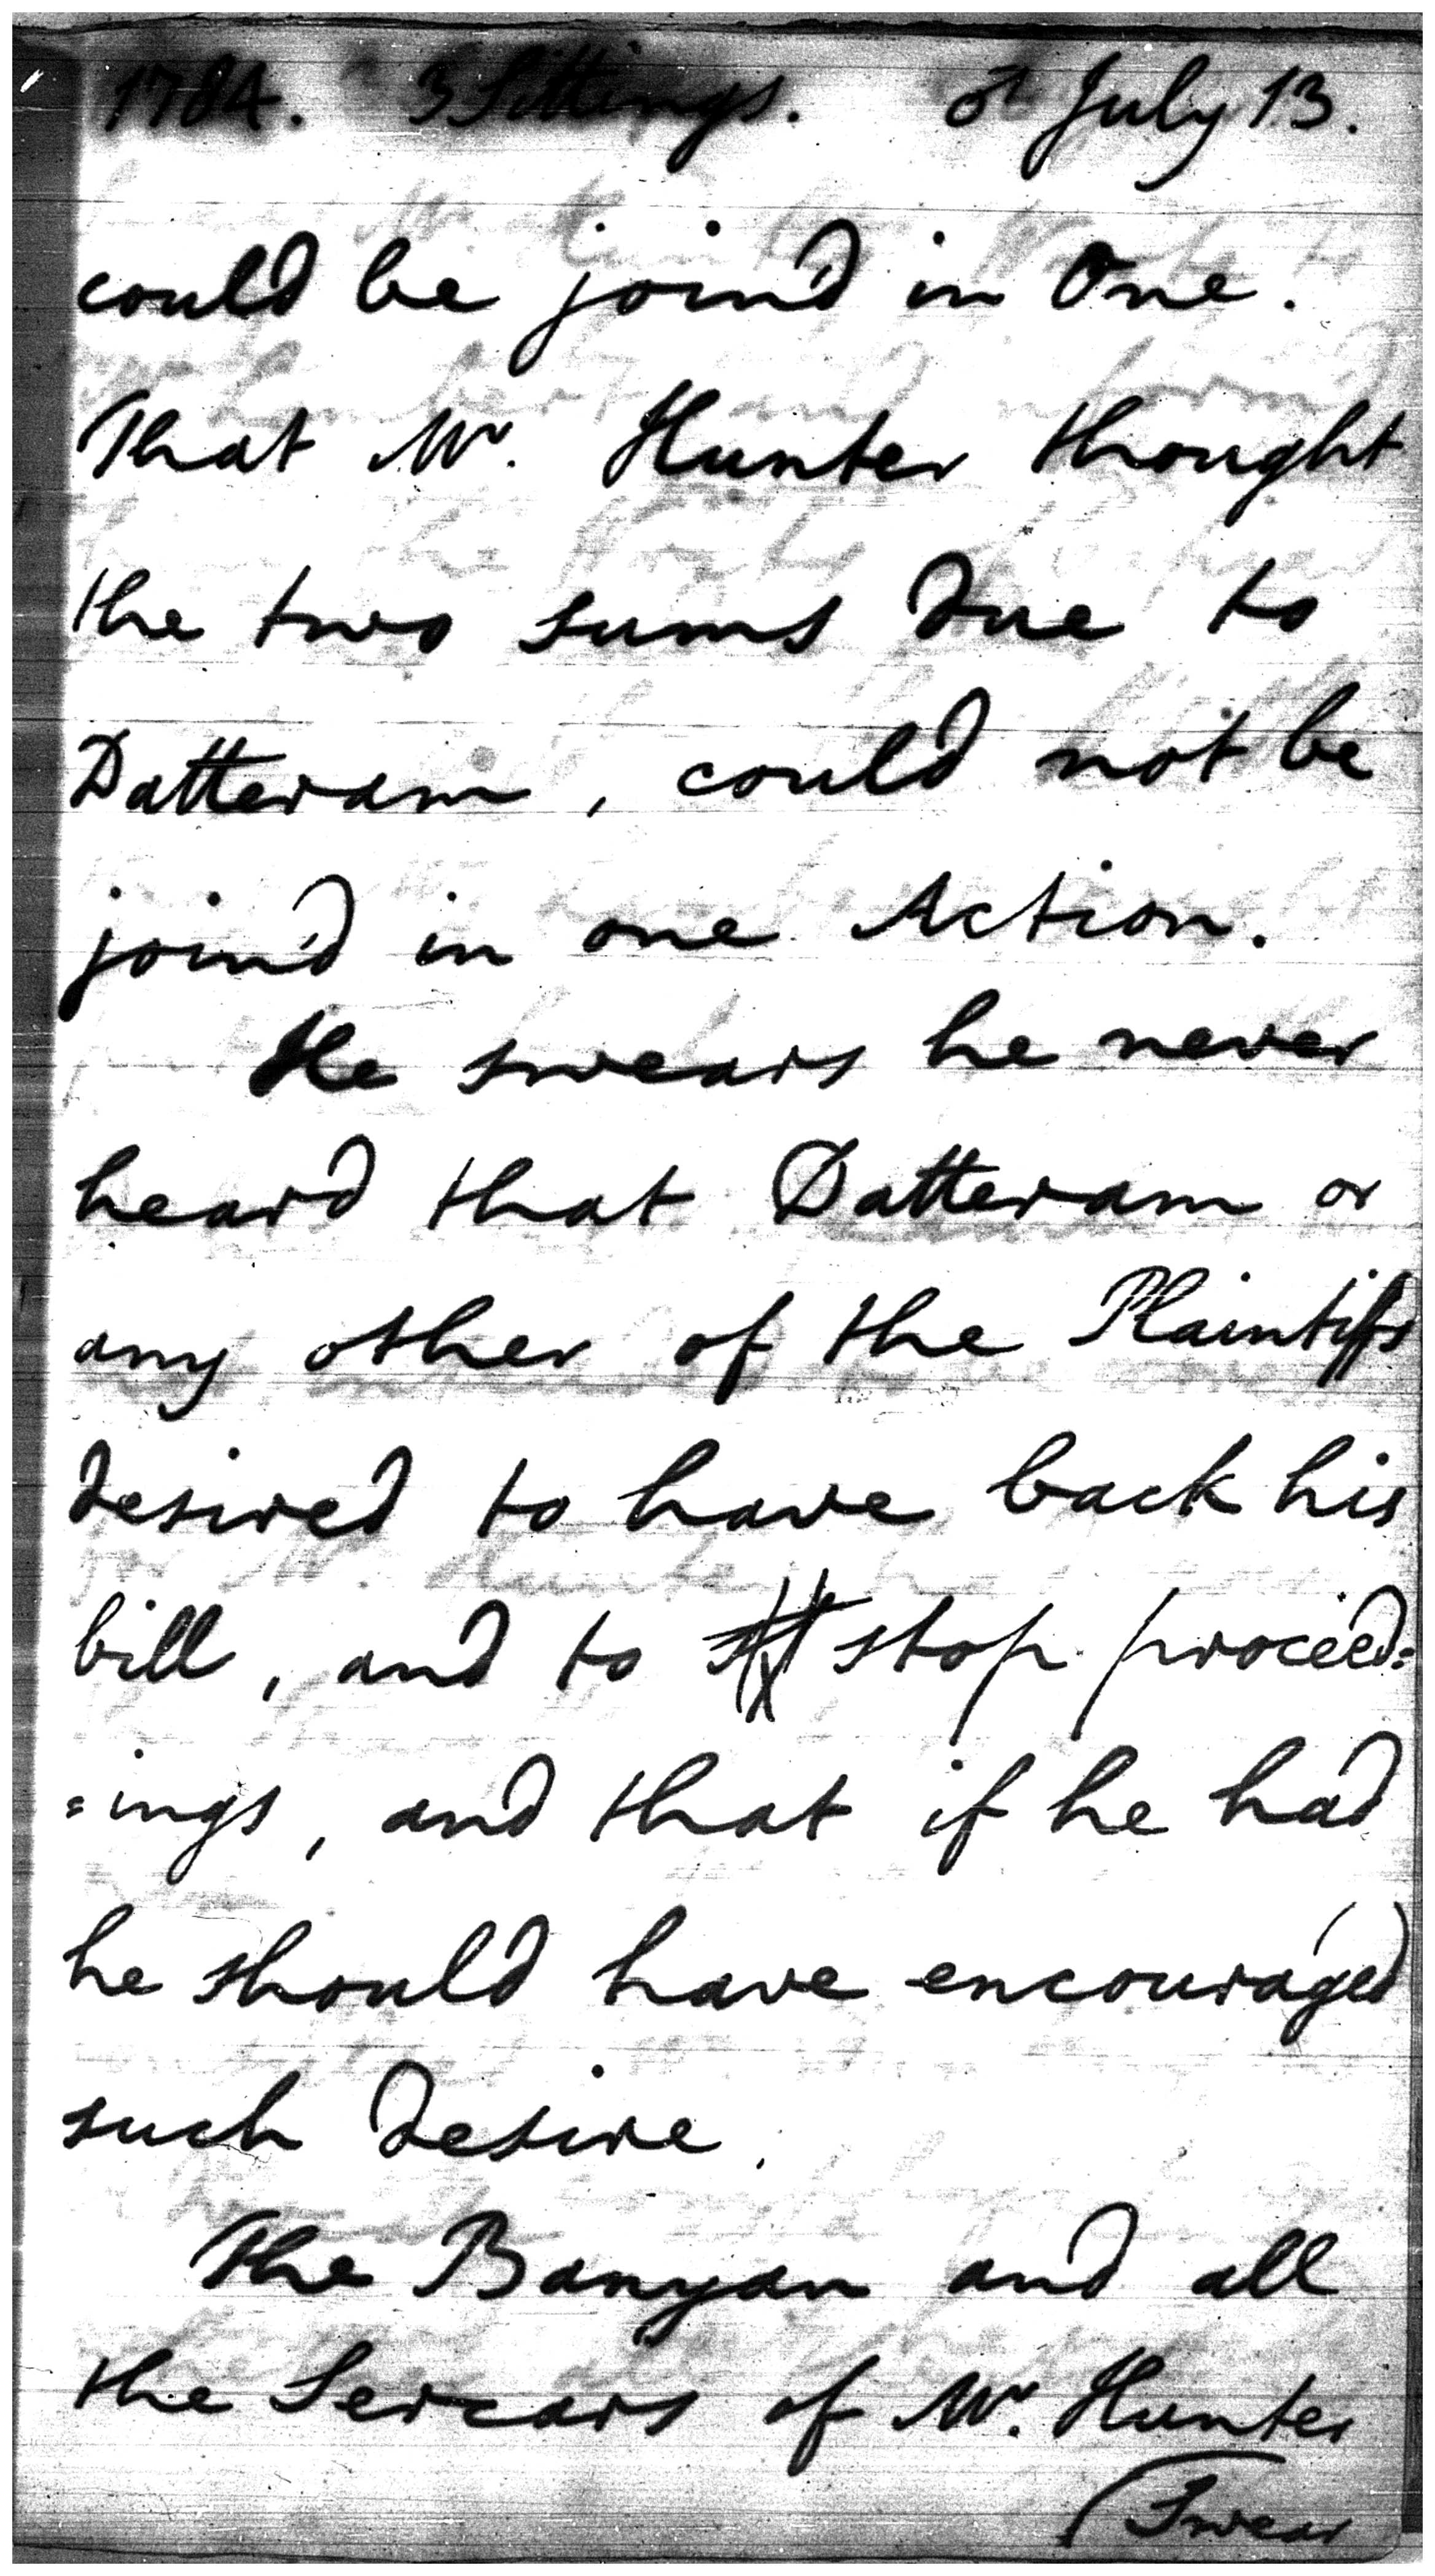 1784. 3 Sittings. July 13.
could be join'd in One.
That Mr. Hunter thought
the two sums due to
Datteram, could not be
join'd in one Action.
He swears he never
heard that Datteram or
any other of the Plaintiffs
desired to have back his
bill, and to stop proceed=
=ings, and that if he had
he should have encouraged
such desire.
The Banyan and all
the Sercars of Mr. Hunter
Swear